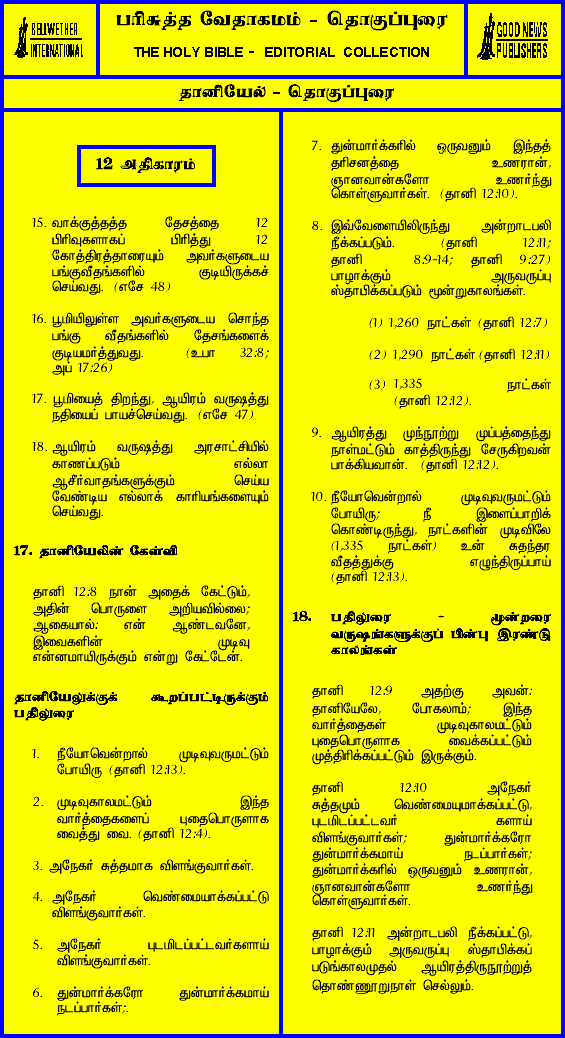 BELLWETHER
INTERNATIONAL
பரிசுத்த வேதாகமம் - தொகுப்புரை
THE HOLY BIBLE - EDITORIAL COLLECTION
GOOD NEWS
PUBLISHERS
தானியேல் - தொகுப்புரை
12 அதிகாரம்
15. வாக்குத்தத்த தேசத்தை 12
பிரிவுகளாகப் பிரித்து 12
கோத்திரத்தாரையும் அவர்களுடைய
பங்குவீதங்களில் குடியிருக்கச்
செய்வது. (எசே 48)
16. பூமியிலுள்ள அவர்களுடைய சொந்த
பங்கு வீதங்களில் தேசங்களைக்
குடியமர்த்துவது. (உபா 32:8;
அப் 17:26)
17. பூமியைத் திறந்து, ஆயிரம் வருஷத்து
நதியைப் பாயச்செய்வது. (எசே 47)
18. ஆயிரம் வருஷத்து அரசாட்சியில்
காணப்படும் எல்லா
ஆசீர்வாதங்களுக்கும் செய்ய
வேண்டிய எல்லாக் காரியங்களையும்
செய்வது.
17. தானியேலின் கேள்வி
தானி 12:8 நான் அதைக் கேட்டும்,
அதின் பொருளை அறியவில்லை;
ஆகையால்: என் ஆண்டவனே,
இவைகளின் முடிவு
என்னமாயிருக்கும் என்று கேட்டேன்.
தானியேலுக்குக் கூறப்பட்டிருக்கும்
பதிலுரை
1. நீயோவென்றால் முடிவுவருமட்டும்
போயிரு (தானி 12:13).
2. முடிவுகாலமட்டும் இந்த
வார்த்தைகளைப் புதைபொருளாக
வைத்து வை. (தானி 12:4).
3. அநேகர் சுத்தமாக விளங்குவார்கள்.
4. அநேகர் வெண்மையாக்கப்பட்டு
விளங்குவார்கள்.
5. அநேகர் புடமிடப்பட்டவர்களாய்
விளங்குவார்கள்.
6. துன்மார்க்கரோ துன்மார்க்கமாய்
நடப்பார்கள்;.
7. துன்மார்க்கரில் ஒருவனும் இந்தத்
தரிசனத்தை உணரான்,
ஞானவான்களோ உணர்ந்து
கொள்ளுவார்கள். (தானி 12:10).
8. இவ்வேளையிலிருந்து அன்றாடபலி
நீக்கப்படும். (தானி 12:11;
தானி 8:9-14; தானி 9:27)
பாழாக்கும் அருவருப்பு
ஸ்தாபிக்கப்படும் மூன்றுகாலங்கள்.
(1) 1,260 நாட்கள் (தானி 12:7)
(2) 1,290 நாட்கள் (தானி 12:11)
(3) 1,335 நாட்கள்
(தானி 12:12).
9. ஆயிரத்து முந்நூற்று முப்பத்தைந்து
நாள்மட்டும் காத்திருந்து சேருகிறவன்
பாக்கியவான். (தானி 12:12).
10. நீயோவென்றால் முடிவுவருமட்டும்
போயிரு; நீ இளைப்பாறிக்
கொண்டிருந்து, நாட்களின் முடிவிலே
(1,335 நாட்கள்) உன் சுதந்தர
வீதத்துக்கு எழுந்திருப்பாய்
(தானி 12:13).
18. பதிலுரை - மூன்றரை
வருஷங்களுக்குப் பின்பு இரண்டு
காலங்கள்
தானி 12:9 அதற்கு அவன்:
தானியேலே, போகலாம்; இந்த
வார்த்தைகள் முடிவுகாலமட்டும்
புதைபொருளாக வைக்கப்பட்டும்
முத்திரிக்கப்பட்டும் இருக்கும்.
தானி 12:10 அநேகர்
சுத்தமும் வெண்மையுமாக்கப்பட்டு,
புடமிடப்பட்டவர் களாய்
விளங்குவார்கள்; துன்மார்க்கரோ
துன்மார்க்கமாய் நடப்பார்கள்;
துன்மார்க்கரில் ஒருவனும் உணரான்,
ஞானவான்களோ உணர்ந்து
கொள்ளுவார்கள்.
தானி 12:11 அன்றாடபலி நீக்கப்பட்டு,
பாழாக்கும் அருவருப்பு ஸ்தாபிக்கப்
படுங்காலமுதல் ஆயிரத்திருநூற்றுத்
தொண்ணூறுநாள் செல்லும்.